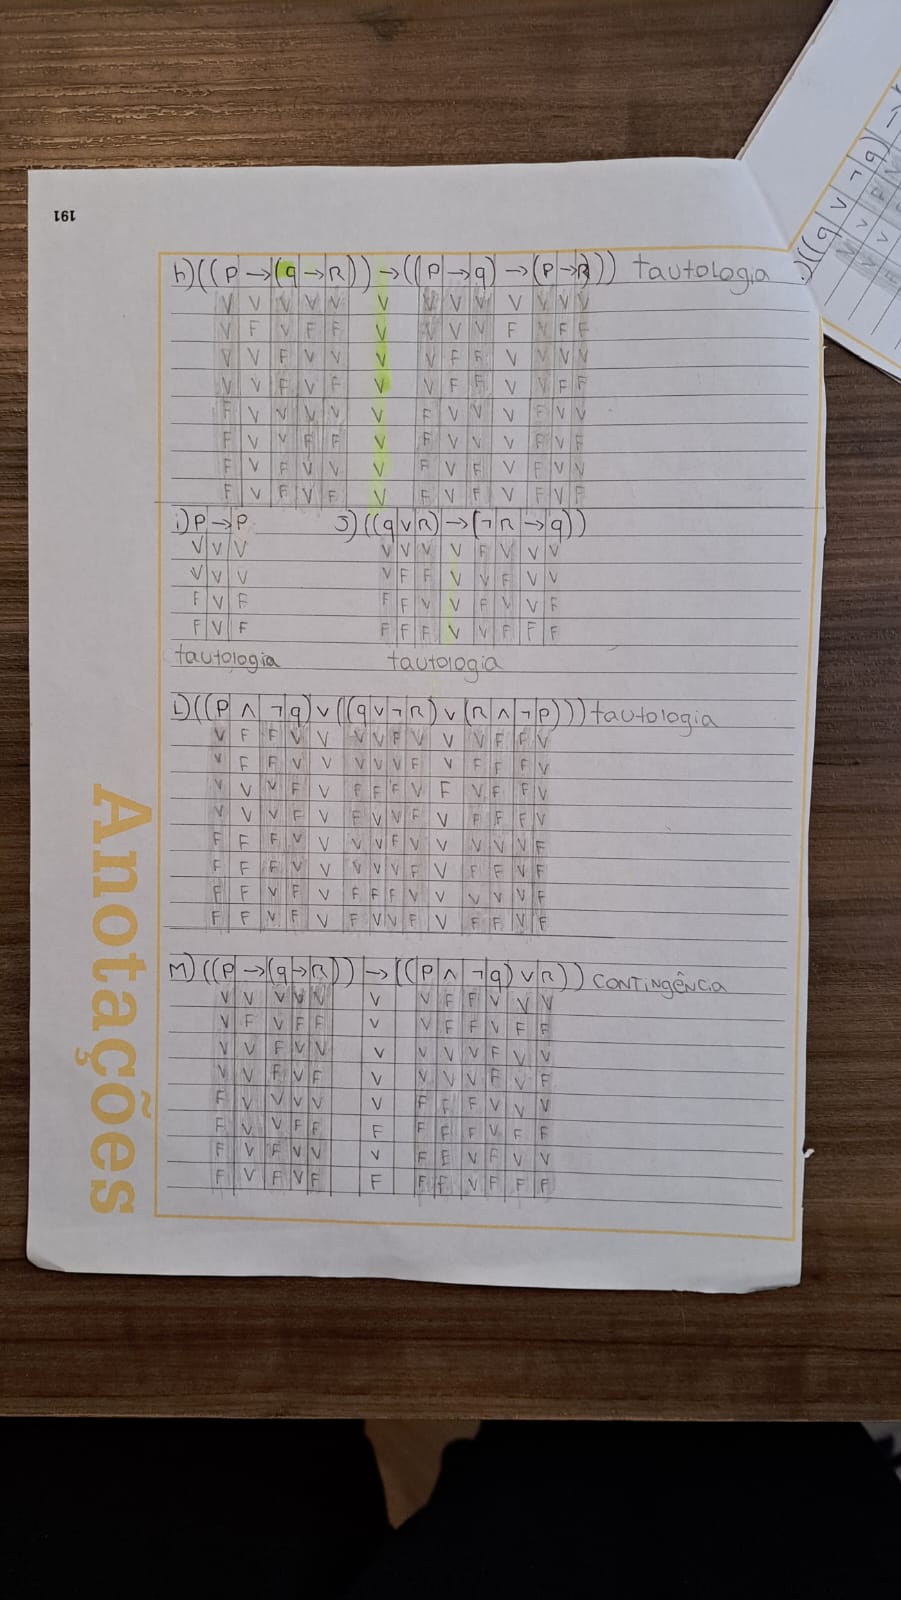 191
h)((P→(q→R))→((P→q)→(P→R))) tautologia
V V V V V V V V V V V V V
V F V F F V V V V F V F F
V V F V V V V F F V V V V
V V F V F V V F F V V F F
F V V V V V F V V V F V V
F V V F F V F V V V F V F
F V F V V V F V F V F V V
F V F V F V F V F V F V F
i)P→P J)((q∨R)→(¬R→q))
V V V V V V V F V V V
V V V V F F V V F V V
F V F F F V V F V V F
F V F F F F V V F F F
tautologia tautologia
L)((P∧¬q)∨((q∨¬R)∨(R∧¬P))) tautologia
V F F V V V V F V V V F F V
V F F V V V V V F V F F F V
V V V F V F F F V F V F F V
V V V F V F V V F V F F F V
F F F V V V V F V V V V V F
F F F V V V V V F V F F V F
F F V F V F F F V V V V V F
F F V F V F V V F V F F V F
M)((P→(q→R))→((P∧¬q)∨R)) CONTINGÊNCIA
V V V V V V V F F V V V
V F V F F V V F F V F F
V V F V V V V V V F V V
V V F V F V V V V F V F
F V V V V V F F F V V V
F V V F F F F F F V F F
F V F V V V F F V F V V
F V F V F F F F V F F F
Anotações
((q∨¬q)→